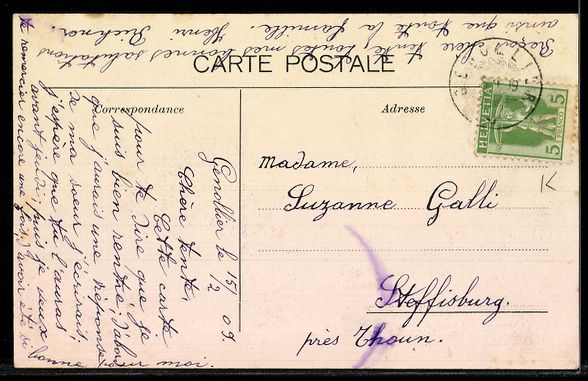 CARTE POSTALE
Correspondance
Adresse
HELVETIA
5
5
Madame,
Suzanne Galli
Steffisburg.
près Thoun.
Genollier le 15/2 09.
Chère tante,
Cette carte
pour te dire que je
suis bien rentré; d'abord
que j'aurais une réponse
de ma soeur j'écrirai.
j'espère que tu l'auras
avant jeudi; puis je veux
te remercier encore une fois, d'avoir été si
bonne pour moi.
Reçois, chère tante, toutes mes bonnes salutations
ainsi que toute la famille. Henri